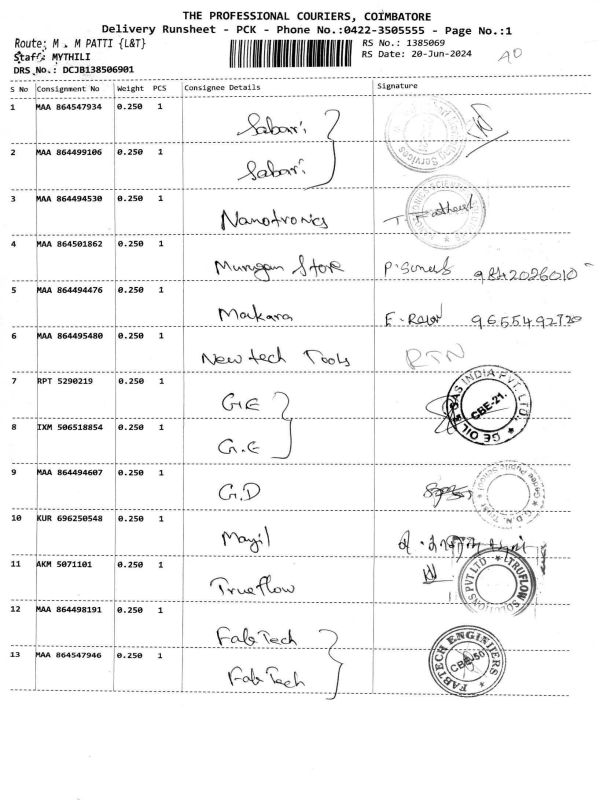 THE PROFESSIONAL COURIERS, COIMBATORE
Delivery Runsheet - PCK - Phone No.:0422-3505555 - Page No.:1
Route: M . M PATTI {L&T}
RS No.: 1385069
Staff: MYTHILI
RS Date: 20-Jun-2024
DRS No.: DCJB138506901
S No Consignment No Weight PCS Consignee Details Signature
1 MAA 864547934 0.250 1 Sabari
2 MAA 864499106 0.250 1 Sabari
3 MAA 864494530 0.250 1 Nanotronics
4 MAA 864501862 0.250 1 Murugan Store
5 MAA 864494476 0.250 1 Makara 9655492720
6 MAA 864495480 0.250 1 New tech Tools RTN
7 RPT 5290219 0.250 1 G.E
GE OIL & GAS INDIA PVT. LTD.
CBE-21.
8 IXM 506518854 0.250 1 G.E
9 MAA 864494607 0.250 1 G.D
10 KUR 696250548 0.250 1 Mayil
11 AKM 5071101 0.250 1 Trueflow
12 MAA 864498191 0.250 1 FabTech
FABTECH ENGINEERS
13 MAA 864547946 0.250 1 FabTech